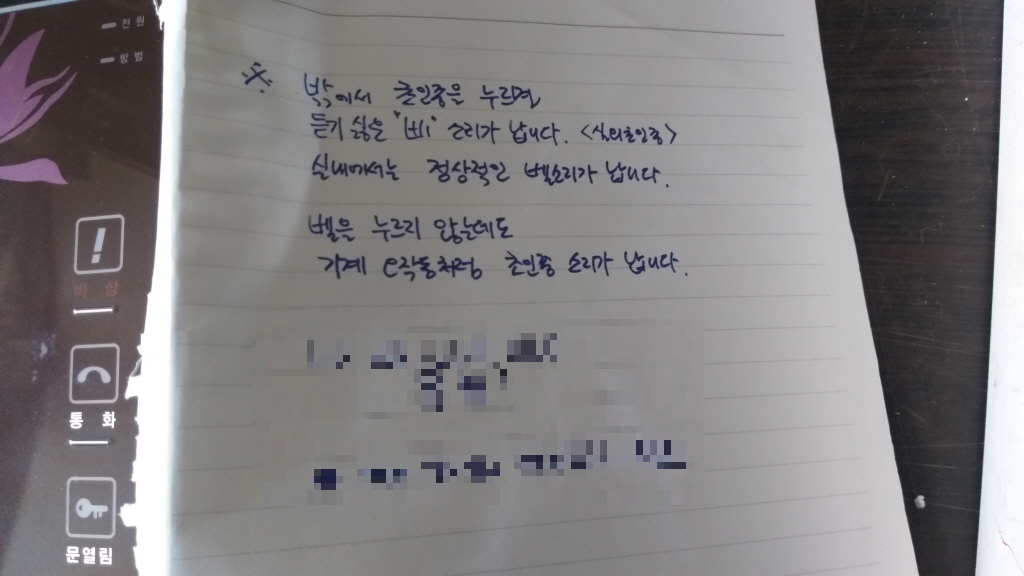 전원
방범
※ 밖에서 초인종은 누르면
듣기 싫은 "삐" 소리가 납니다. <실외초인종>
실내에서는 정상적인 벨소리가 납니다.
벨은 누르지 않는데도
기계 오작동처럼 초인종 소리가 납니다.
비상
통화
문열림